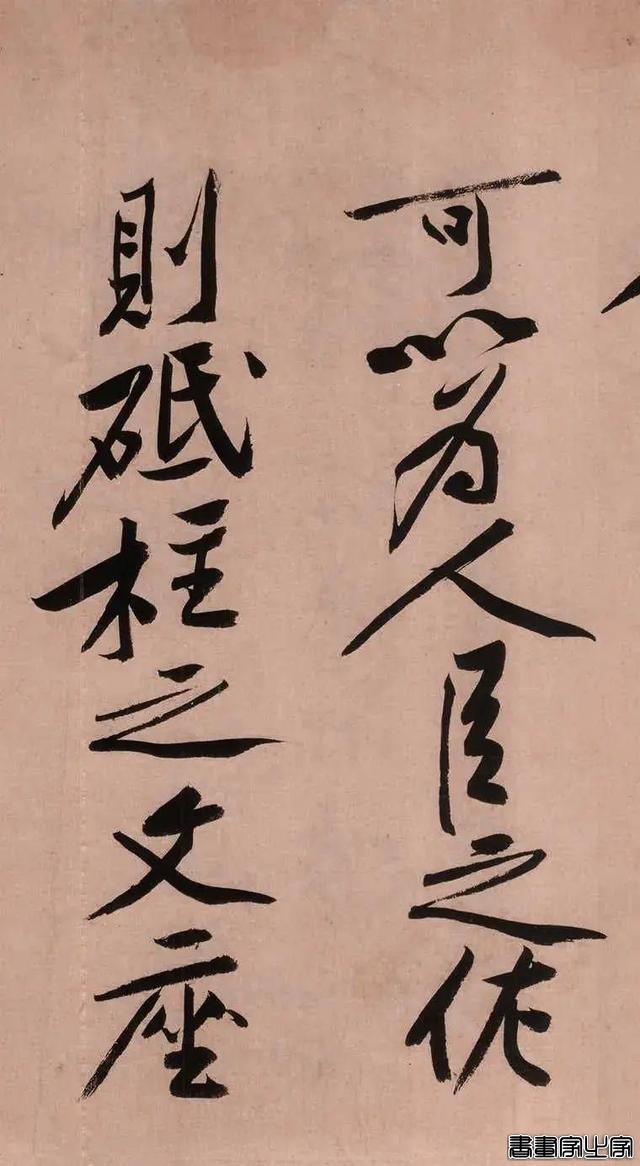 可以為人臣之作
則砥柱之文座
書畫家之家